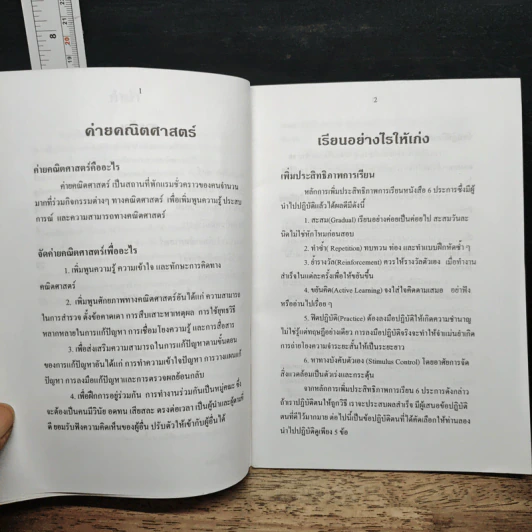 1
ค่ายคณิตศาสตร์
ค่ายคณิตศาสตร์คืออะไร
ค่ายคณิตศาสตร์ เป็นสถานที่พักแรมชั่วคราวของคนจำนวน
มากที่ร่วมกิจกรรมต่างๆ ทางคณิตศาสตร์ เพื่อเพิ่มพูนความรู้ ประสบ
การณ์ และความสามารถทางคณิตศาสตร์
จัดค่ายคณิตศาสตร์เพื่ออะไร
1. เพิ่มพูนความรู้ ความเข้าใจ และทักษะการคิดทาง
คณิตศาสตร์
2. เพิ่มพูนศักยภาพทางคณิตศาสตร์อันได้แก่ ความสามารถ
ในการสำรวจ ตั้งข้อคาดเดา การสืบเสาะหาเหตุผล การใช้ยุทธวิธี
หลากหลายในการแก้ปัญหา การเชื่อมโยงความรู้ และการสื่อสาร
3. เพื่อส่งเสริมความสามารถในการแก้ปัญหาตามขั้นตอน
ของการแก้ปัญหาอันได้แก่ การทำความเข้าใจปัญหา การวางแผนแก้
ปัญหา การลงมือแก้ปัญหาและการตรวจผลย้อนกลับ
4. เพื่อฝึกการอยู่ร่วมกัน การทำงานร่วมกันเป็นหมู่คณะ ซึ่ง
จะต้องเป็นคนมีวินัย อดทน เสียสละ ตรงต่อเวลา เป็นผู้นำและผู้ตามที่
ดี ยอมรับฟังความคิดเห็นของผู้อื่น ปรับตัวให้เข้ากับผู้อื่นได้
2
เรียนอย่างไรให้เก่ง
เพิ่มประสิทธิภาพการเรียน
หลักการเพิ่มประสิทธิภาพการเรียนหนังสือ 6 ประการซึ่งมีผู้
นำไปปฏิบัติแล้วได้ผลดีมีดังนี้
1. สะสม(Gradual) เรียนอย่างค่อยเป็นค่อยไป สะสมวันละ
นิดไม่ใช่หักโหมก่อนสอบ
2. ทำซ้ำ( Repetition) ทบทวน ท่อง และทำแบบฝึกหัดซ้ำ ๆ
3. ย้ำรางวัล(Reinforcement) ควรให้รางวัลตัวเอง เมื่อทำงาน
สำเร็จในแต่ละครั้งเพื่อให้ขยันขึ้น
4. ขยันคิด(Active Learning) จงใส่ใจคิดตามเสมอ อย่าฟัง
หรืออ่านไปเรื่อย ๆ
5. ฟิตปฏิบัติ(Practice) ต้องลงมือปฏิบัติให้เกิดความชำนาญ
ไม่ใช่รู้แต่ทฤษฎีอย่างเดียว การลงมือปฏิบัติจริงจะทำให้จำแม่นยำเกิด
การถ่ายโยงความจำระยะสั้นให้เป็นระยะยาว
6. หาทางบังคับตัวเอง (Stimulus Control) โดยอาศัยการจัด
สิ่งแวดล้อมเป็นตัวเร่งและกระตุ้น
จากหลักการเพิ่มประสิทธิภาพการเรียน 6 ประการดังกล่าว
ถ้าเราปฏิบัติตนให้ถูกวิธี เราจะประสบผลสำเร็จ มีผู้เสนอข้อปฏิบัติ
ตนที่ดีไว้มากมาย ต่อไปนี้เป็นข้อปฏิบัติตนที่ได้คัดเลือกให้ท่านลอง
นำไปปฏิบัติดูเพียง 5 ข้อ